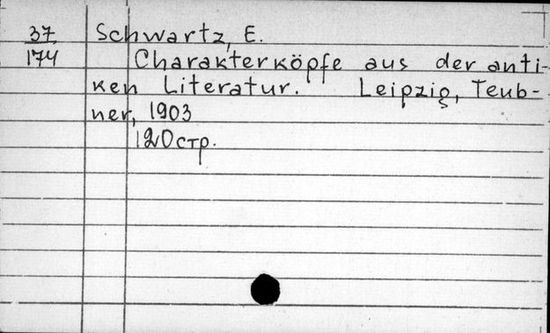 37 Schwartz, E.
174 Charakterköpfe aus der anti-
ken Literatur. Leipzig, Teub-
ner, 1903
120стр.